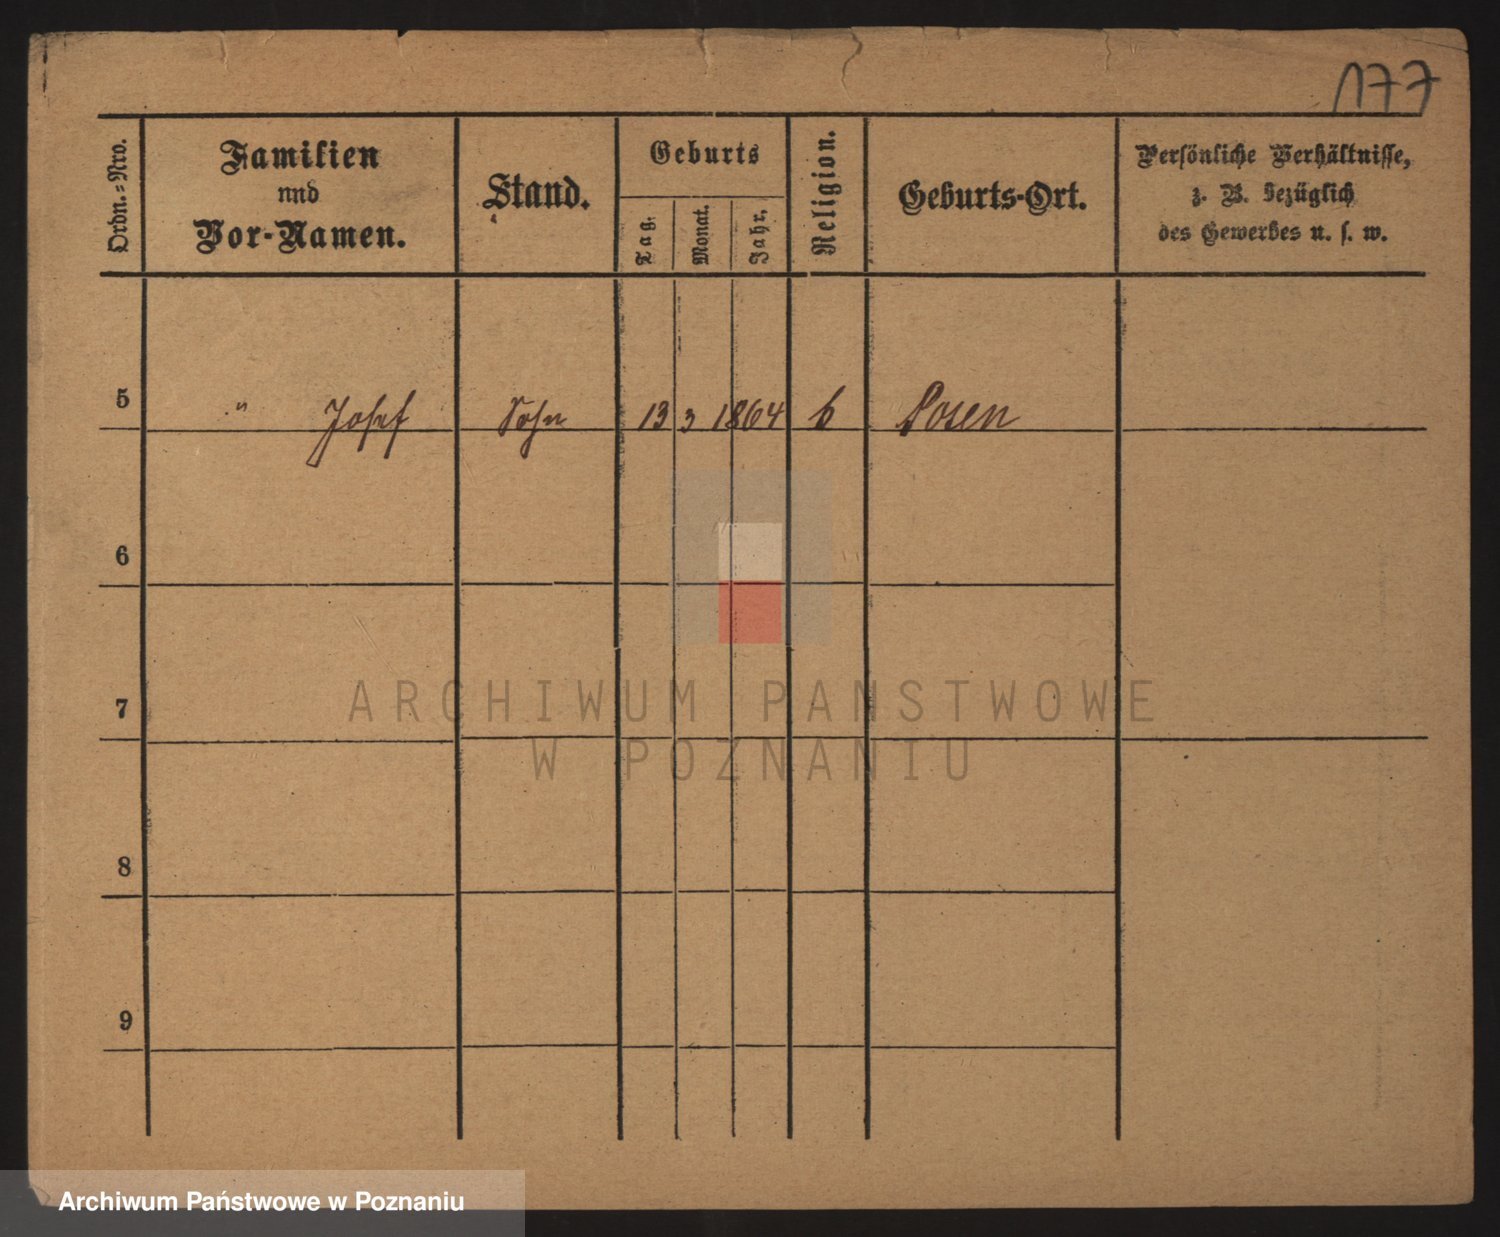 177
Ordn.=Nro.
Familien
und
Vor-Namen.
Stand.
Geburts
Tag.
Monat.
Jahr.
Religion.
Geburts-Ort.
Persönliche Verhältnisse,
z. B. bezüglich
des Gewerbes u. s. w.
5 " Josef Sohn 13 3 1864 Posen
6
7
8
9
ARCHIWUM PANSTWOWE
W POZNANIU
Archiwum Państwowe w Poznaniu